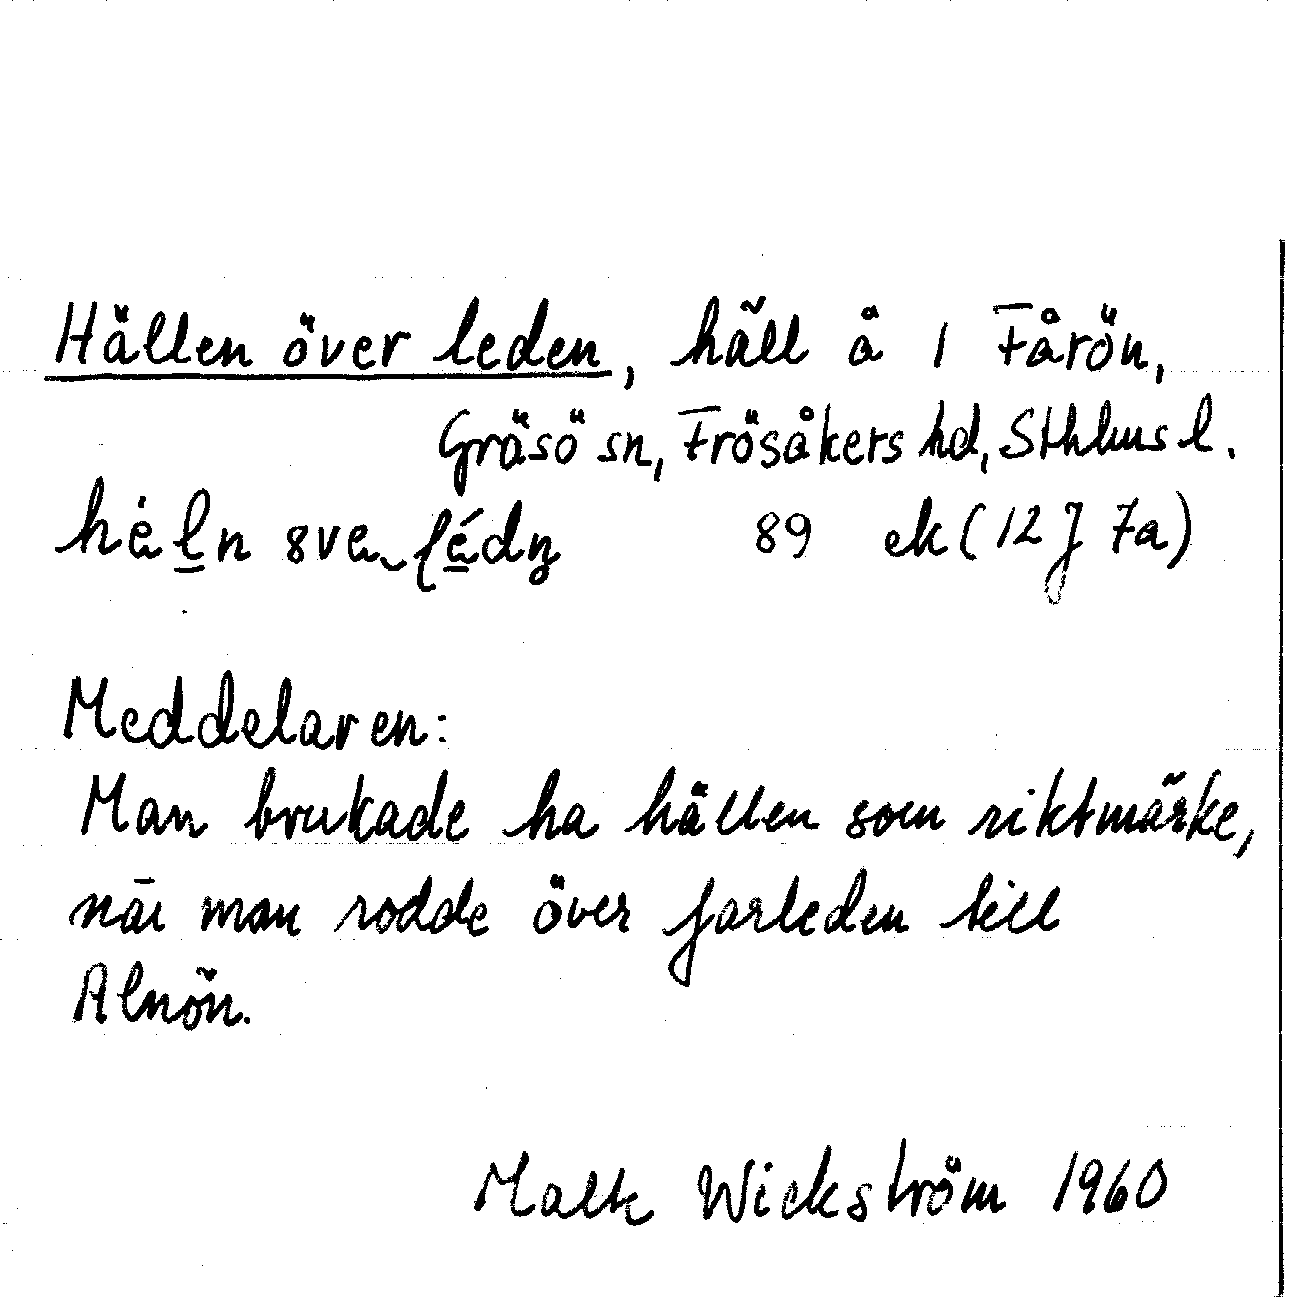 Hällen över leden, häll å 1 Fårön,
Gräsö sn, Frösåkers hd, Sthlms l.
89 ek (12 J 7a)
Meddelaren:
Man brukade ha hällen som riktmärke,
när man rodde över farleden till
Alnön.
Wickström 1960